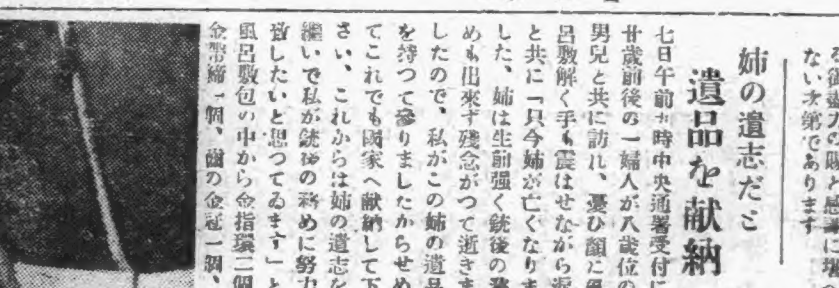 ない次第であります
姉の遺志だと
遺品を献納
七日午前十時中央通署受付に
廿歳前後の一婦人が八歳位の
男兒と共に訪れ、憂ひ顔に
呂敷解く手も震はせながら
と共に「只今姉が亡くなりま
した、姉は生前强く銃後の
めも出來ず殘念がつて逝きま
したので、私がこの姉の遺品
を持つて參りましたからせめ
てこれでも國家へ献納して下
さい、これからは姉の遺志を
繼いで私が銃後の務めに努力
致したいと思つてゐます」と
風呂敷包の中から金指環二個
金帶締一個、齒の金冠一個、